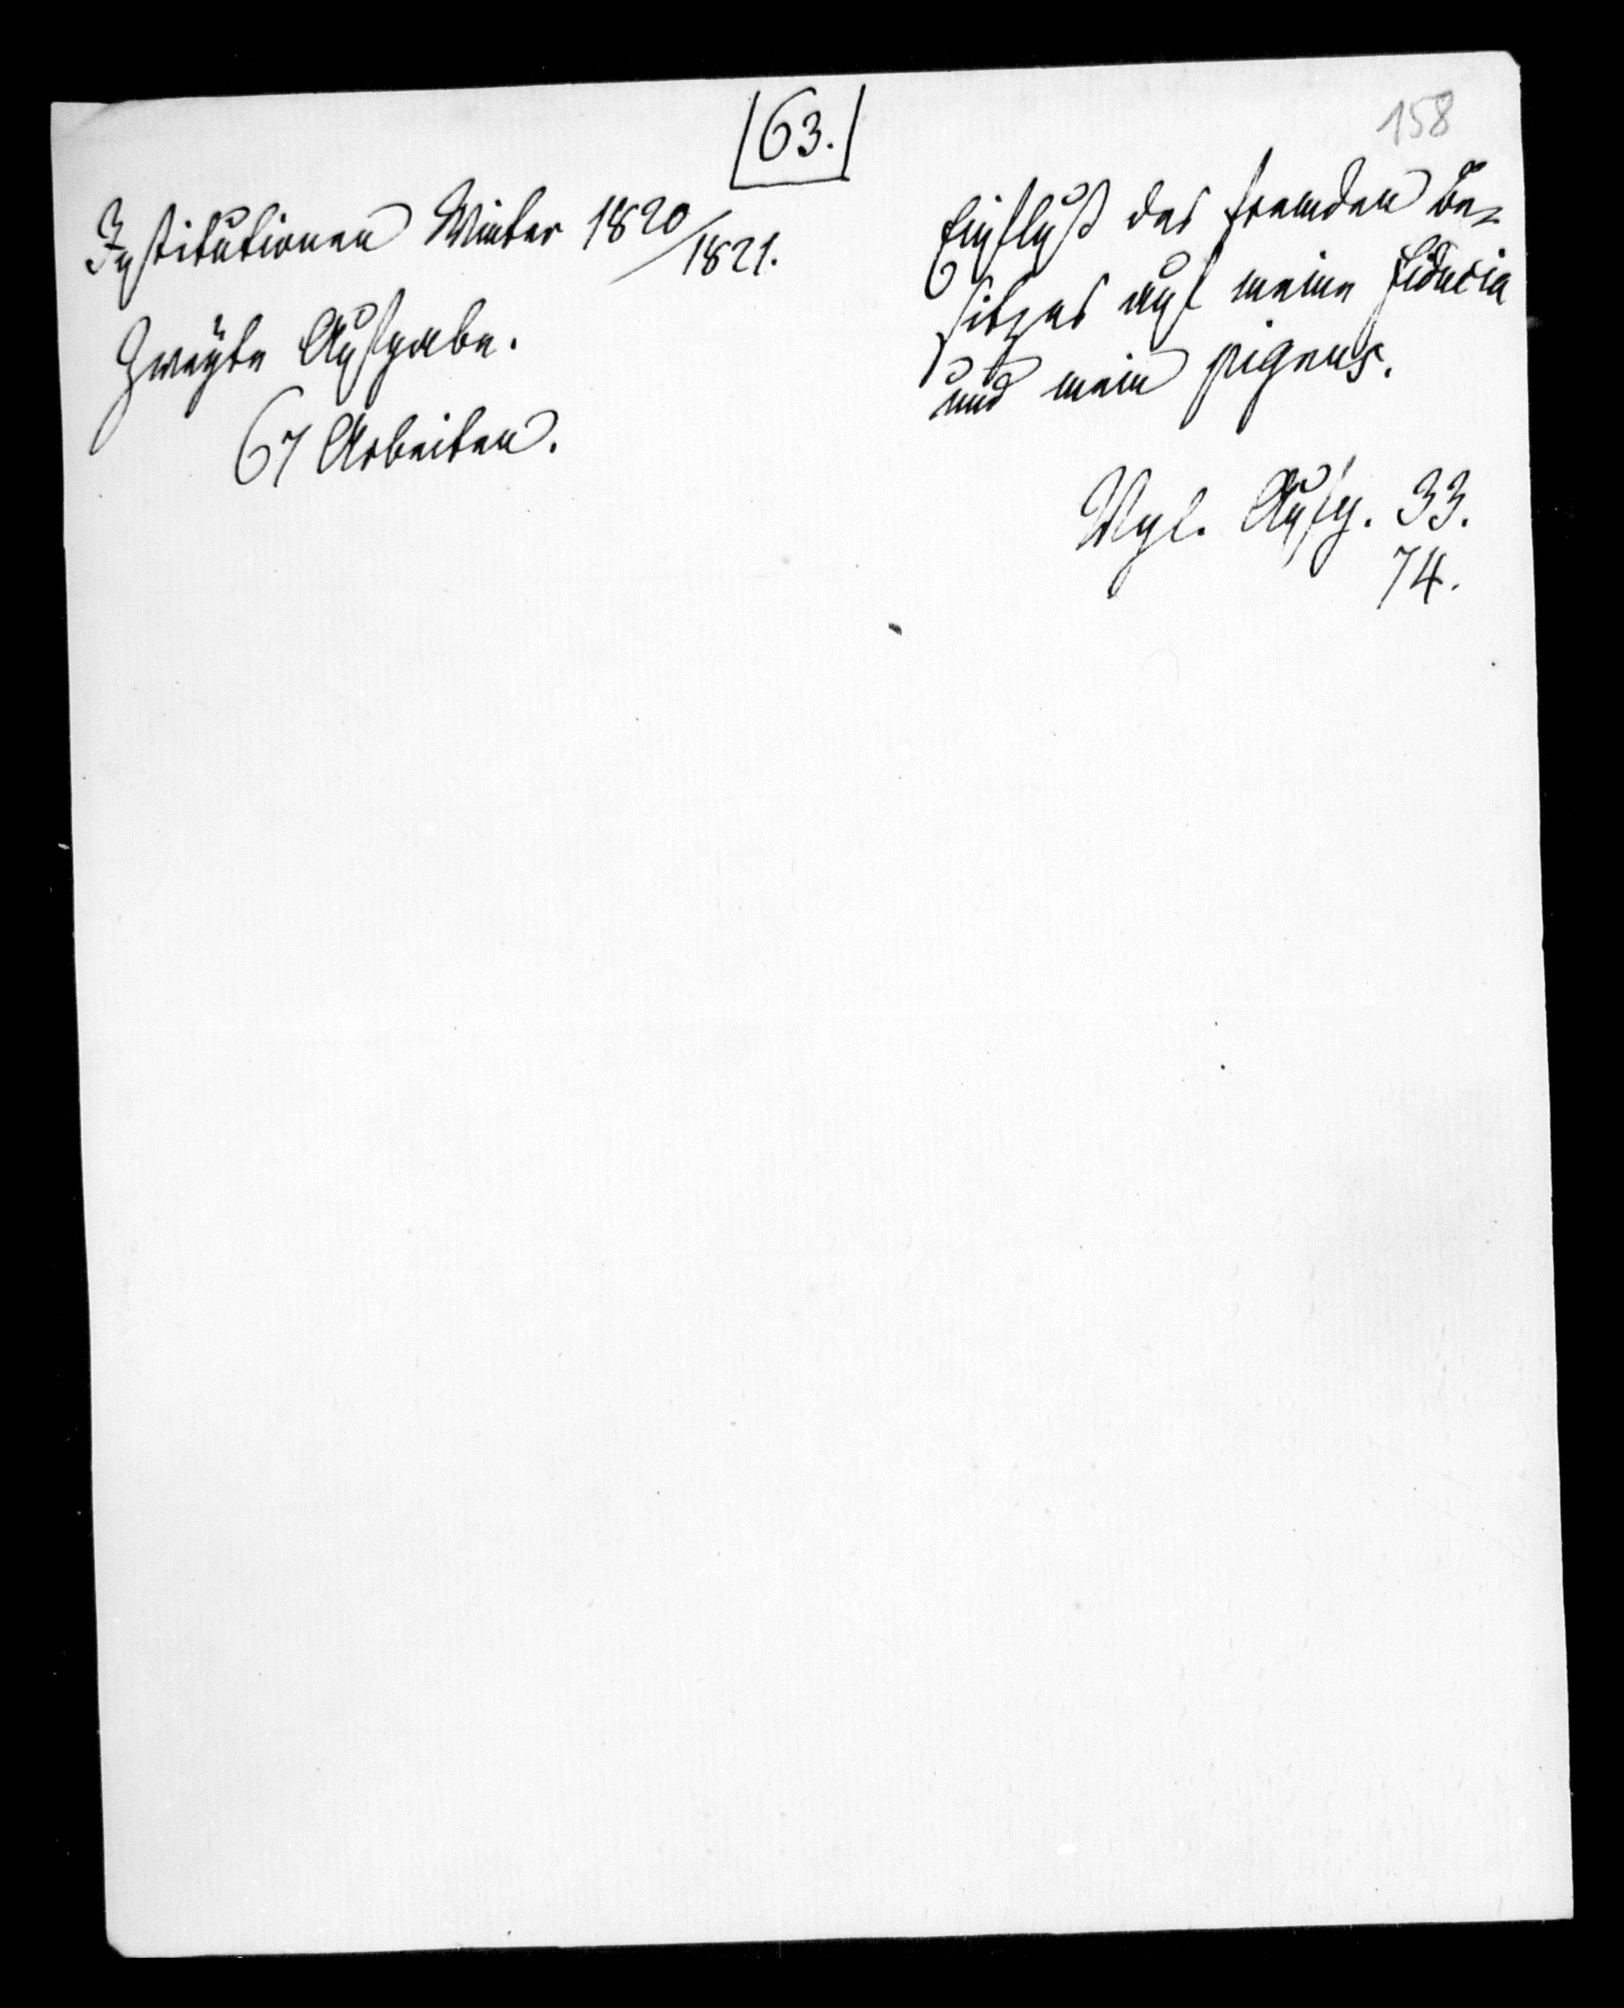 63.
158
Institutionen Winter 1820/1821.
Zweyte Aufgabe.
67 Arbeiten.
Einfluß des fremden Be-
sitzes auf meine fiducia
und mein pignus.
Vgl. Aufg. 33.
74.